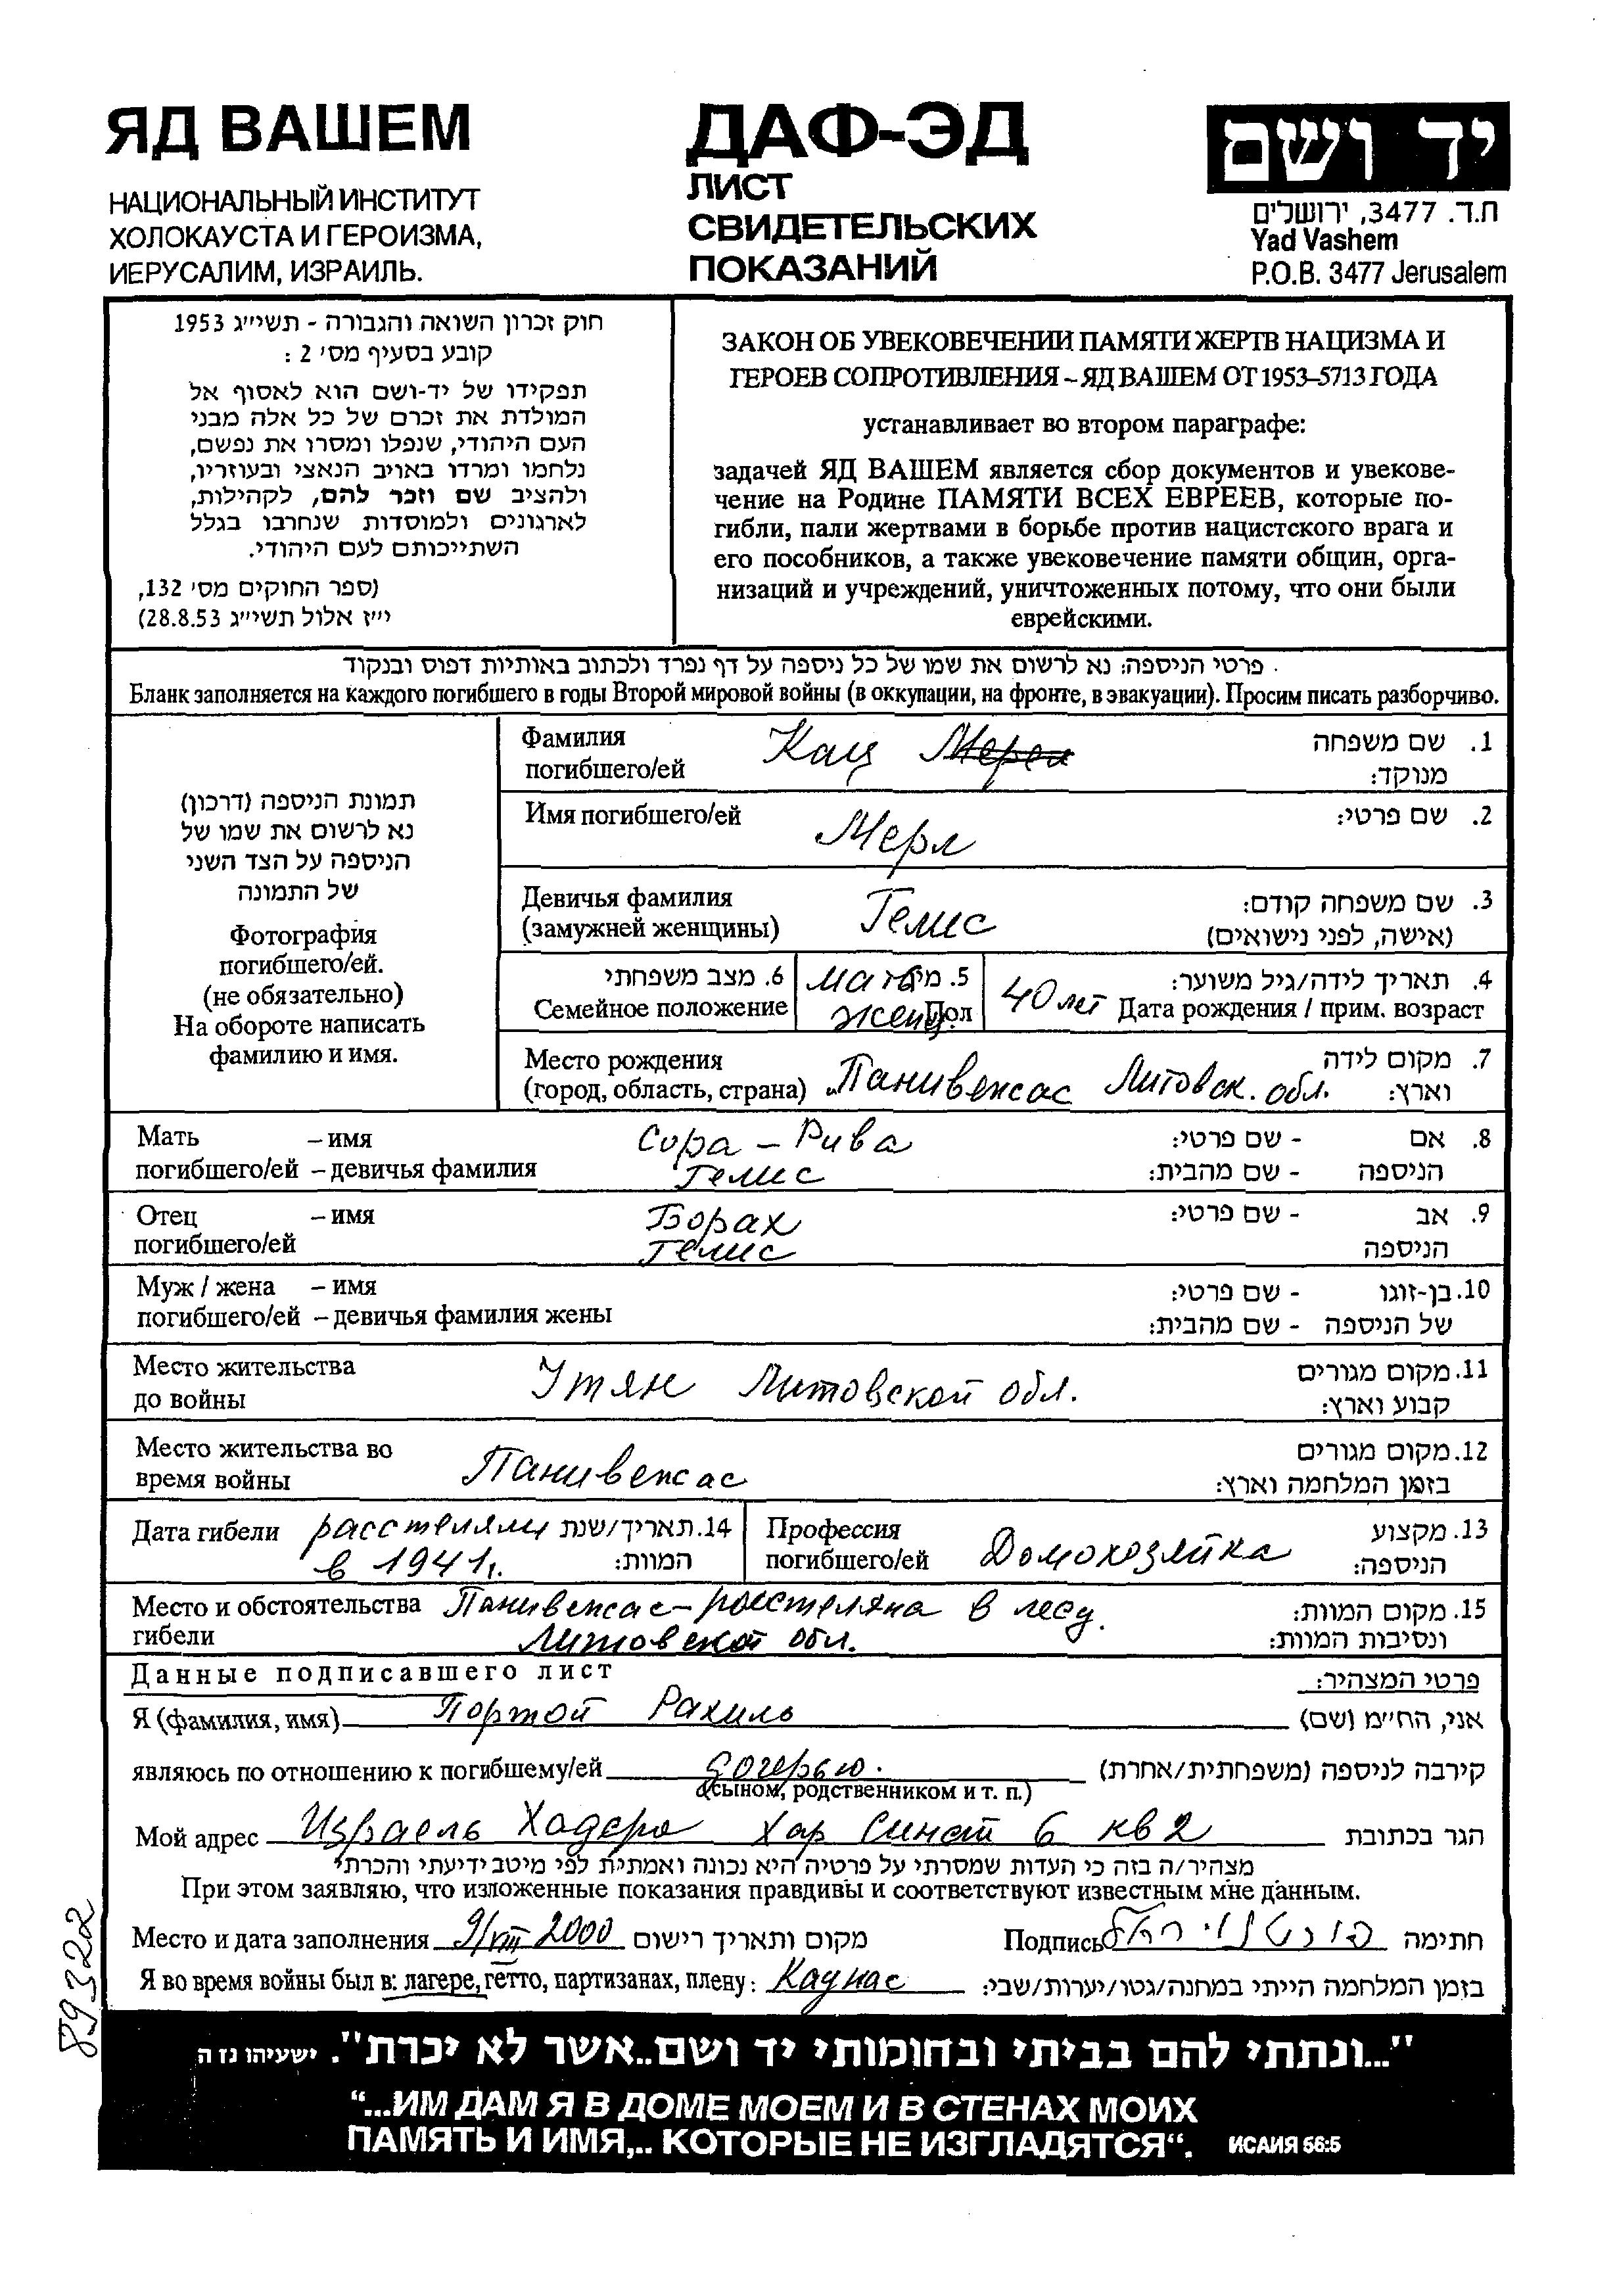 ЯД ВАШЕМ
НАЦИОНАЛЬНЫЙ ИНСТИТУТ
ХОЛОКАУСТА И ГЕРОИЗМА,
ИЕРУСАЛИМ, ИЗРАИЛЬ.
ДАФ-ЭД
ЛИСТ
СВИДЕТЕЛЬСКИХ
ПОКАЗАНИЙ
יד ושם
ת.ד. 3477, ירושלים
Yad Vashem
P.O.B. 3477 Jerusalem
חוק זכרון השואה והגבורה - תשי״ג 1953
קובע בסעיף מס׳ 2 :
תפקידו של יד-ושם הוא לאסוף אל
המולדת את זכרם של כל אלה מבני
העם היהודי, שנפלו ומסרו את נפשם,
נלחמו ומרדו באויב הנאצי ובעוזריו,
ולהציב שם וזכר להם, לקהילות,
לארגונים ולמוסדות שנחרבו בגלל
השתייכותם לעם היהודי.
(ספר החוקים מס׳ 132,
י״ז אלול תשי״ג 28.8.53)
ЗАКОН ОБ УВЕКОВЕЧЕНИИ ПАМЯТИ ЖЕРТВ НАЦИЗМА И
ГЕРОЕВ СОПРОТИВЛЕНИЯ – ЯД ВАШЕМ ОТ 1953–5713 ГОДА
устанавливает во втором параграфе:
задачей ЯД ВАШЕМ является сбор документов и увекове-
чение на Родине ПАМЯТИ ВСЕХ ЕВРЕЕВ, которые по-
гибли, пали жертвами в борьбе против нацистского врага и
его пособников, а также увековечение памяти общин, орга-
низаций и учреждений, уничтоженных потому, что они были
еврейскими.
פרטי הניספה: נא לרשום את שמו של כל ניספה על דף נפרד ולכתוב באותיות דפוס ובנקוד
Бланк заполняется на каждого погибшего в годы Второй мировой войны (в оккупации, на фронте, в эвакуации). Просим писать разборчиво.
תמונת הניספה (דרכון)
נא לרשום את שמו של
הניספה על הצד השני
של התמונה
Фотография
погибшего/ей.
(не обязательно)
На обороте написать
фамилию и имя.
Фамилия Кац 1. שם משפחה
погибшего/ей מנוקד:
Имя погибшего/ей Мерл 2. שם פרטי:
Девичья фамилия Гелис 3. שם משפחה קודם:
(замужней женщины) (אישה, לפני נישואים)
6. מצב משפחתי 5. מין мать 4. תאריך לידה/גיל משוער:
Семейное положение Пол женщ. 40 лет Дата рождения / прим. возраст
Место рождения 7. מקום לידה
(город, область, страна) Панивежсас Литовск. обл. וארץ:
Мать – имя Сора – Рива 8. אם - שם פרטי:
погибшего/ей – девичья фамилия Гелис הניספה - שם מהבית:
Отец – имя Борах 9. אב - שם פרטי:
погибшего/ей Гелис הניספה
Муж / жена – имя 10. בן-זוגו - שם פרטי:
погибшего/ей – девичья фамилия жены של הניספה - שם מהבית:
Место жительства Утян Литовской обл. 11. מקום מגורים
до войны קבוע וארץ:
Место жительства во 12. מקום מגורים
время войны Панивежсас בזמן המלחמה וארץ:
Дата гибели расстеляли 14. תאריך/שנת Профессия Домохозяйка 13. מקצוע
в 1941г. המוות: погибшего/ей הניספה:
Место и обстоятельства Панивежсас – расстеляна в лесу. 15. מקום המוות:
гибели Литовской обл. ונסיבות המוות:
Данные подписавшего лист פרטי המצהיר:
Я (фамилия, имя) Портной Рахиль אני, הח״מ (שם)
являюсь по отношению к погибшему/ей дочерью. קירבה לניספה (משפחתית/אחרת)
(сыном, родственником и т. п.)
Мой адрес Израель Хадера Хар Синай 6 кв 2 הגר בכתובת
מצהיר/ה בזה כי העדות שמסרתי על פרטיה היא נכונה ואמתית לפי מיטב ידיעתי והכרתי
При этом заявляю, что изложенные показания правдивы и соответствуют известным мне данным.
Место и дата заполнения 9/VIII 2000 מקום ותאריך רישום Подпись פורטנוי רחל חתימה
Я во время войны был в: лагере, гетто, партизанах, плену: Каунас בזמן המלחמה הייתי במחנה/גטו/יערות/שבי:
89322
"...ונתתי להם בביתי ובחומותי יד ושם..אשר לא יכרת". ישעיהו נז ה
“...ИМ ДАМ Я В ДОМЕ МОЕМ И В СТЕНАХ МОИХ
ПАМЯТЬ И ИМЯ,.. КОТОРЫЕ НЕ ИЗГЛАДЯТСЯ“. ИСАИЯ 56:5